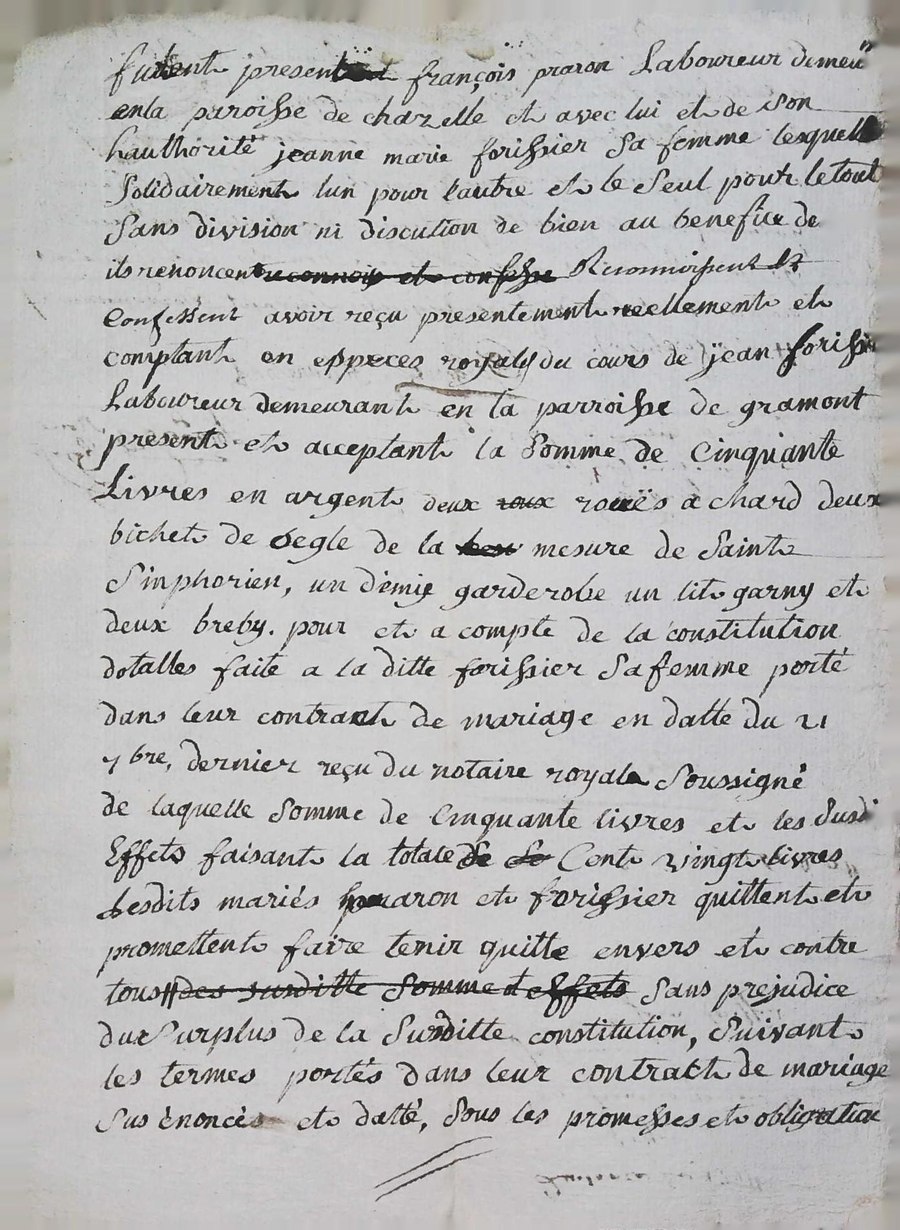 furent present françois praron Laboureur demeu
en la paroisse de chazelle et avec lui et de Son
hauthorité jeanne marie forissier Sa femme lesquell
Solidairement lun pour lautre et le Seul pour le tout
Sans division ni discution de bien au benefice de
ils renoncent reconnois et confesse Reconnoissent et
Confessent avoir reçu presentement reellement et
comptant en esppeces royals du cours de jean forissi
Laboureur demeurant en la parroisse de gramont
present et acceptant la Somme de Cinquante
Livres en argent deux roux rouës a chard deux
bichet de Segle de la mesure de Saint
Simphorien, un demie garderobe un lit garny et
deux breby. pour et a compte de la constitution
dotalles faite a la ditte forissier Sa femme porté
dans leur contract de mariage en datte du 21
7bre, dernier reçu du notaire royale Soussigné
de laquelle Somme de Cinquante livres et les Susdi
Effets faisant la totale de de Cent vingt livres
Lesdits mariés praron et forissier quittent et
promettent faire tenir quitte envers et contre
tous des susditte Somme et effets Sans prejudice
du Surplus de la Susditte constitution, Suivant
les termes portés dans leur contract de mariage
Sus énoncés et datté, Sous les promesses et obligation